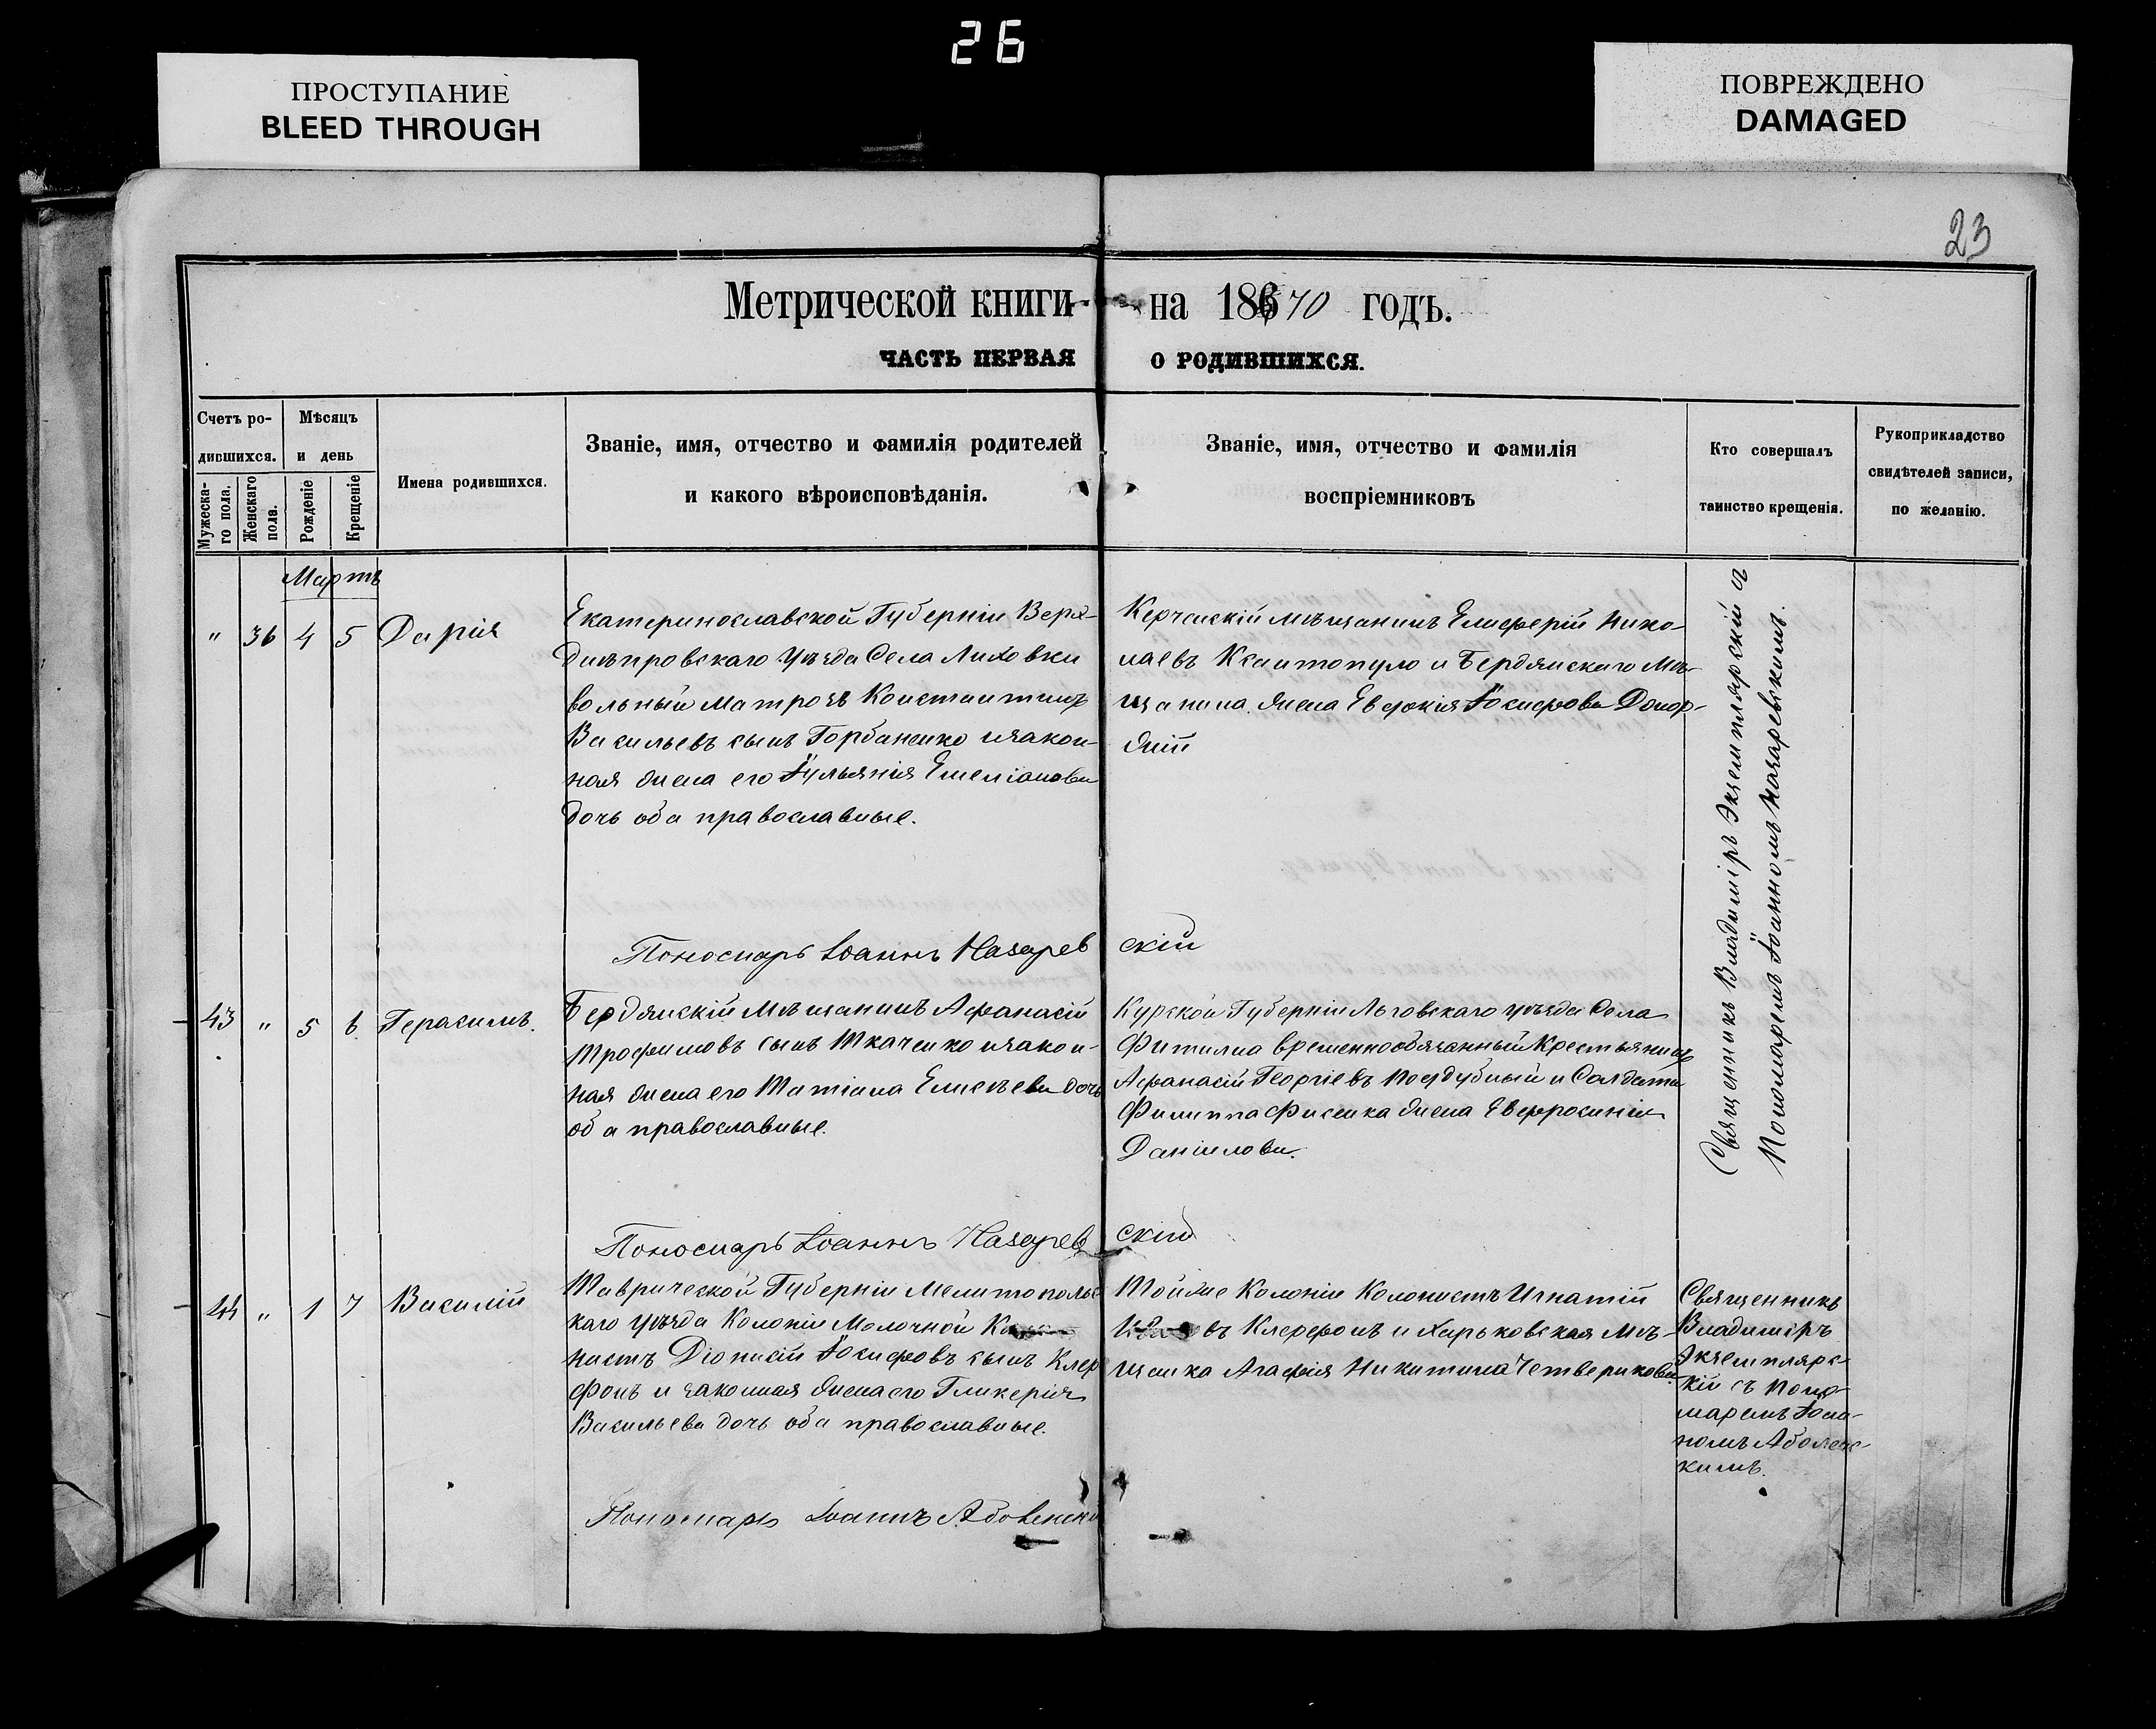 26
ПРОСТУПАНИЕ
BLEED THROUGH
ПОВРЕЖДЕНО
DAMAGED
23
Метрической книги на 1870 годъ.
ЧАСТЬ ПЕРВАЯ О РОДИВШИХСЯ.
Счетъ ро-
дившихся.
Мужеска-
го пола.
Женскаго
пола.
Мѣсяцъ
и день
Рожденіе
Крещеніе
Имена родившихся.
Званіе, имя, отчество и фамилія родителей
и какого вѣроисповѣданія.
Званіе, имя, отчество и фамилія
воспріемниковъ
Кто совершалъ
таинство крещенія.
Рукоприкладство
свидѣтелей записи,
по желанію.
Мартъ
" 36 4 5 Дарія
Екатеринославской Губерніи Верх-
днѣпровскаго уѣзда Села Лиховки
вольный матрозъ Константинъ
Васильевъ сынъ Горбаненко и закон-
ная жена его Іульянія Емеліанова
дочь оба православные.
Керченскій мѣщанинъ Елиферій Нико-
лаевъ Ксантопуло и Бердянскаго Мѣ-
щанина жена Евдокія Іосифова
Священникъ Владиміръ Экземплярскій съ
Пономаремъ Іоанномъ Назаревскимъ.
Пономарь Іоаннъ Назаревскій
43 " 5 6 Герасимъ.
Бердянскій Мѣщанинъ Афанасій
Трофимовъ сынъ Ткаченко и закон-
ная жена его Татіана Елисѣева дочь
оба православные.
Курской Губерніи Льговскаго уѣзда Села
Фитижа временнообязанный Крестьянинъ
Афанасій Георгіевъ Поддубный и Солдата
Филиппа Фисенка жена Евфросинія
Даніилова.
Пономарь Іоаннъ Назаревскій
44 " 1 7 Василій
Таврической Губерніи Мелитопольс
каго уѣзда Колоніи Молочной
нистъ Діонисій Іосифовъ сынъ Клер
фонъ и законная жена его Гликерія
Васильева дочь оба православные.
Той же Колоніи Колонистъ Игнатій
въ Клерфонъ и Харьковская Мѣ-
щанка Агафія Никитина Четверикова.
Священникъ
Владиміръ
Экземплярс-
кій съ Поно-
маремъ Іоан-
номъ
кимъ.
Пономарь Іоаннъ